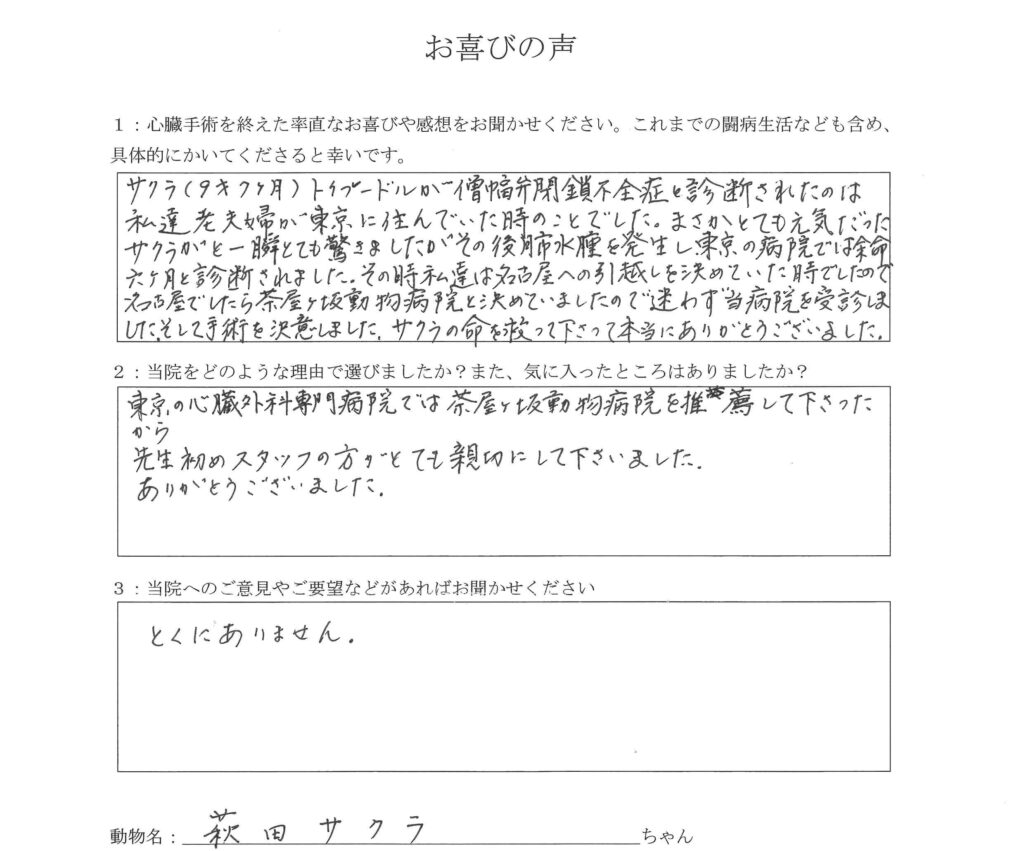 お喜びの声
1：心臓手術を終えた率直なお喜びや感想をお聞かせください。これまでの闘病生活なども含め、
具体的にかいてくださると幸いです。
サクラ(9才7ヶ月)トイプードルが僧帽弁閉鎖不全症と診断されたのは
私達老夫婦が東京に住んでいた時のことでした。まさかとても元気だった
サクラがと一瞬とても驚きましたがその後肺水腫を発生し東京の病院では余命
六ヶ月と診断されました。その時私達は名古屋への引越しを決めていた時でしたので
名古屋でしたら茶屋ヶ坂動物病院と決めていましたので迷わず当病院を受診しま
した。そして手術を決意しました。サクラの命を救って下さって本当にありがとうございました。
2：当院をどのような理由で選びましたか？また、気に入ったところはありましたか？
東京の心臓外科専門病院では茶屋ヶ坂動物病院を推薦して下さった
から
先生初めスタッフの方がとても親切にして下さいました。
ありがとうございました。
3：当院へのご意見やご要望などがあればお聞かせください
とくにありません。
動物名：萩田サクラちゃん